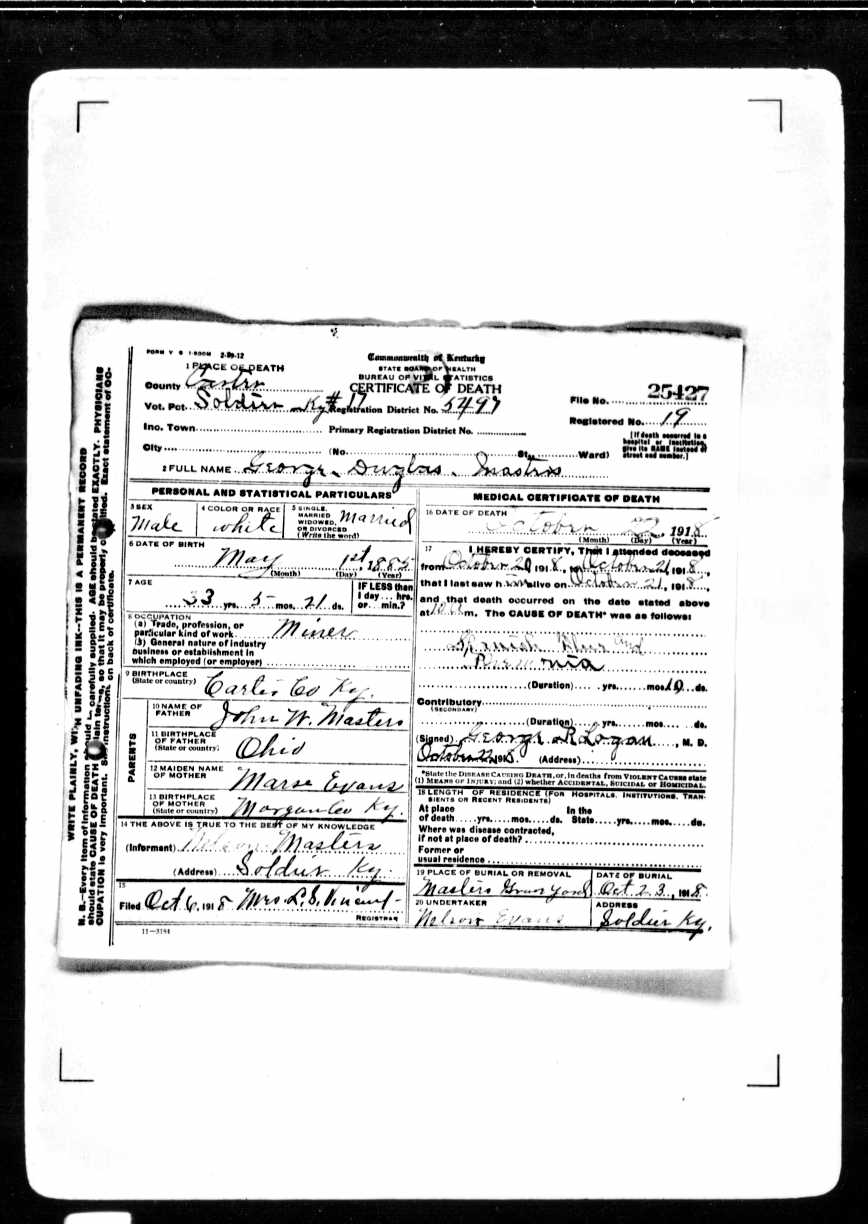 FORM V S 1-500M 2-29-12
Commonwealth of Kentucky
STATE BOARD OF HEALTH
BUREAU OF VITAL STATISTICS
CERTIFICATE OF DEATH
1 PLACE OF DEATH
County Carter
Vot. Pct. Soldier Ky #17 Registration District No. 5497
File No. 25427
Registered No. 19
Inc. Town Primary Registration District No.
[If death occurred in a hospital or institution, give its NAME instead of street and number.]
City (No. St., Ward)
2 FULL NAME George Duglas Masters
PERSONAL AND STATISTICAL PARTICULARS
3 SEX Male
4 COLOR OR RACE white
5 SINGLE, MARRIED WIDOWED, OR DIVORCED (Write the word) Married
6 DATE OF BIRTH
May 1st, 1885
(Month) (Day) (Year)
7 AGE
33 yrs. 5 mos. 21 ds.
IF LESS than 1 day... hrs. or... min.?
8 OCCUPATION
(a) Trade, profession, or particular kind of work Miner
(b) General nature of industry business or establishment in which employed (or employer)
9 BIRTHPLACE
(State or country) Carter Co Ky.
PARENTS
10 NAME OF FATHER John W. Masters
11 BIRTHPLACE OF FATHER (State or country) Ohio
12 MAIDEN NAME OF MOTHER Evans
13 BIRTHPLACE OF MOTHER (State or country) Morgan Co Ky.
14 THE ABOVE IS TRUE TO THE BEST OF MY KNOWLEDGE
(Informant) Nelson Masters
(Address) Soldier Ky.
15
Filed Oct 6, 1918 Mrs. L. S. Vincent
REGISTRAR
11-3184
MEDICAL CERTIFICATE OF DEATH
16 DATE OF DEATH
October 1918
(Month) (Day) (Year)
17 I HEREBY CERTIFY, That I attended deceased
from October 20, 1918, to October 21, 1918,
that I last saw him alive on October 21, 1918,
and that death occurred on the date stated above
at m. The CAUSE OF DEATH* was as follows:
(Duration) yrs. mos. 10 ds.
Contributory
(SECONDARY)
(Duration) yrs. mos. ds.
(Signed) George R Logan, M. D.
October 22, 1918 (Address)
*State the DISEASE CAUSING DEATH, or, in deaths from VIOLENT CAUSES state (1) MEANS OF INJURY; and (2) whether ACCIDENTAL, SUICIDAL or HOMICIDAL.
18 LENGTH OF RESIDENCE (FOR HOSPITALS, INSTITUTIONS, TRANSIENTS OR RECENT RESIDENTS)
At place of death yrs. mos. ds. In the State yrs. mos. ds.
Where was disease contracted,
if not at place of death?
Former or
usual residence
19 PLACE OF BURIAL OR REMOVAL Masters Grave Yard
DATE OF BURIAL Oct. 23, 1918
20 UNDERTAKER Nelson Evans
ADDRESS Soldier Ky.
WRITE PLAINLY, WITH UNFADING INK—THIS IS A PERMANENT RECORD
N. B.—Every item of information should be carefully supplied. AGE should be stated EXACTLY. PHYSICIANS
should state CAUSE OF DEATH in plain terms, so that it may be properly classified. Exact statement of OC-
CUPATION is very important. See instructions on back of certificate.